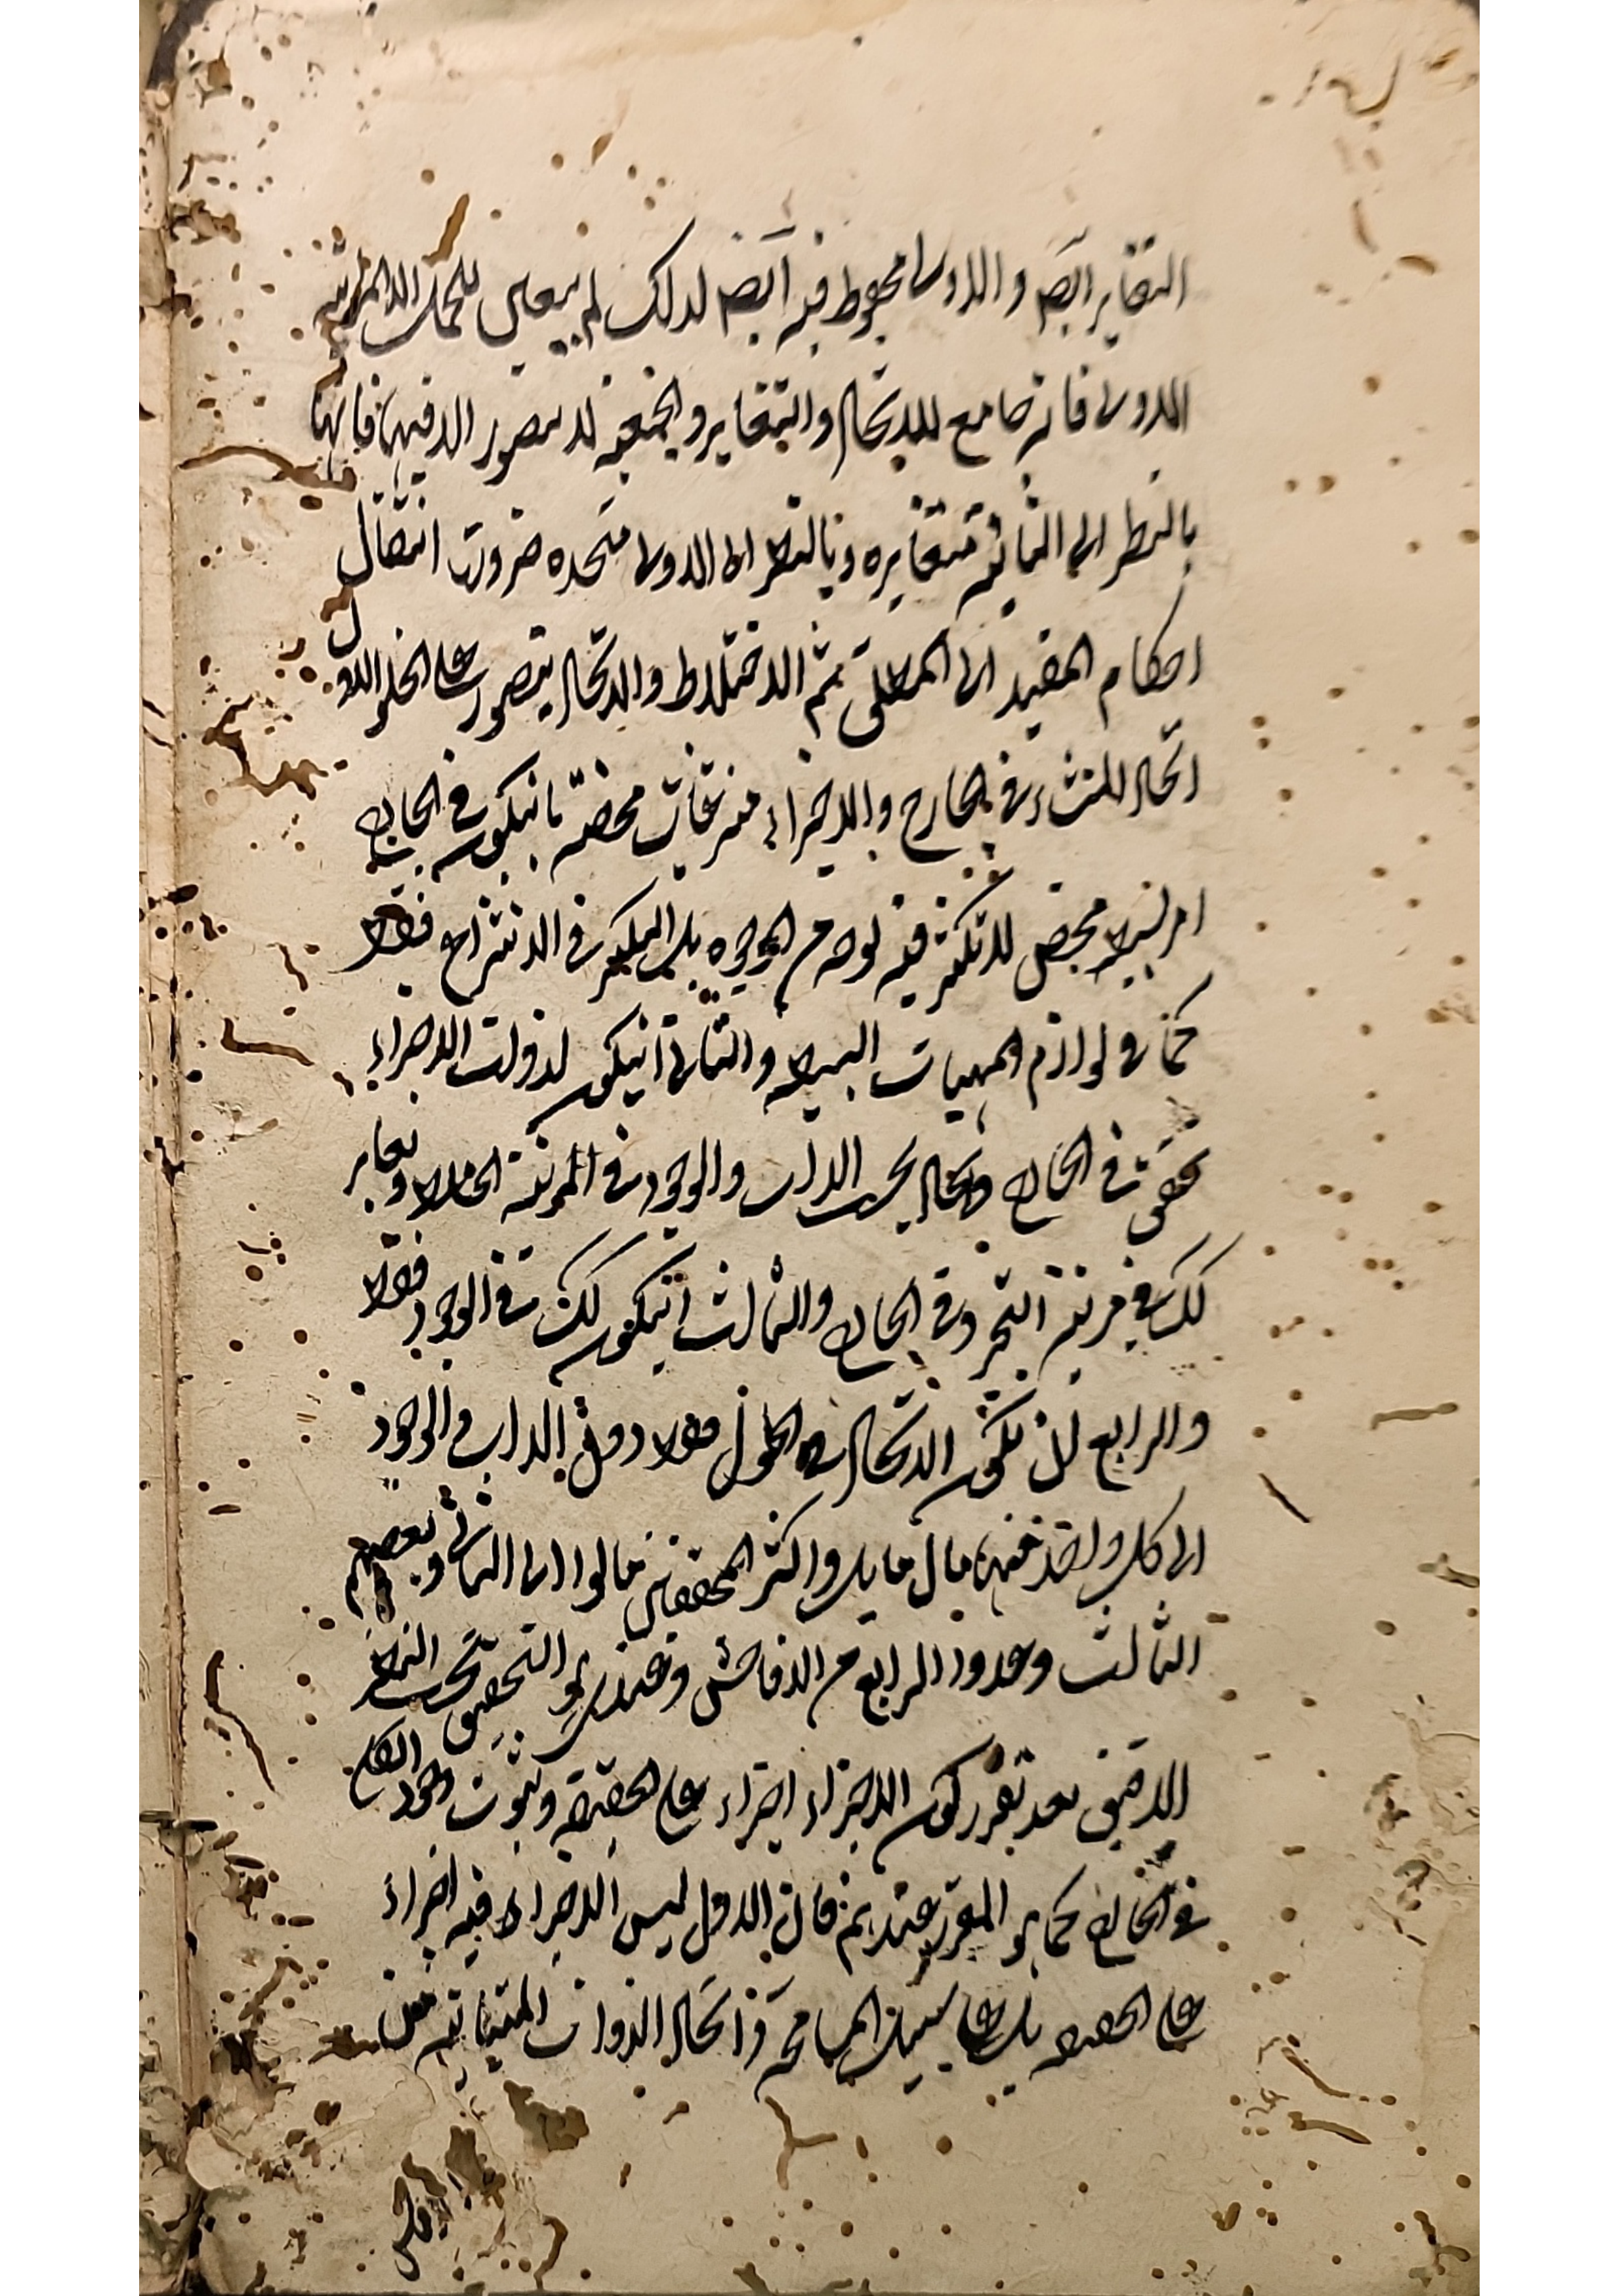 التغاير ايضا و الاولى محفوظ فيه ايضا لذلك لم يبق للحمل الا المرتبة
الاولى فانه جامع للاتحاد والتغاير والجمعية لا يتصور الا فيها فانها
بالنظر الى الثانية متغايره وبالنظر الى الاولى متحده ضرورت انتقال
احكام المقيد الى المطلق ثم الاختلاط والاتحاد يتصور على انحاء الاول
اتحاد المنشاء فى الخارج والاجزاء منتزعات محضة بانيكون فى الخارج
امر بسيط محض لا تكثر فيه بوجه من الوجوه بل التكثر فى الانتزاع فقط
كما فى لوازم المهيات البسيطة والثانى انيكون لذوات الاجزاء
تحقق فى الخارج واتحاد بحسب الذات والوجود فى المرتبة الخلط وتغاير
كك فى مرتبة التجرد فى الخارج والثالث انيكون كك فى الوجود فقط
والرابع ان يكون الاتحاد فى الحلول فقط دون الذات والوجود
الى كل واحد منها مال مايل واكثر المحققين مالوا الى الثانى وبعضهم
الثالث وعدوا الرابع من الافاحش وعندى هو التحقيق بحسب النظر
الدقيق بعد تقرر كون الاجزاء اجزاء على الحقيقة وثبوت وجود الطبايع
فى الخارج كما هو المقرر عندهم فان الاول ليس الاجزاء فيه اجزاء
على الحقيقة بل على سبيل المسامحة و اتحاد الذوات المتباينة